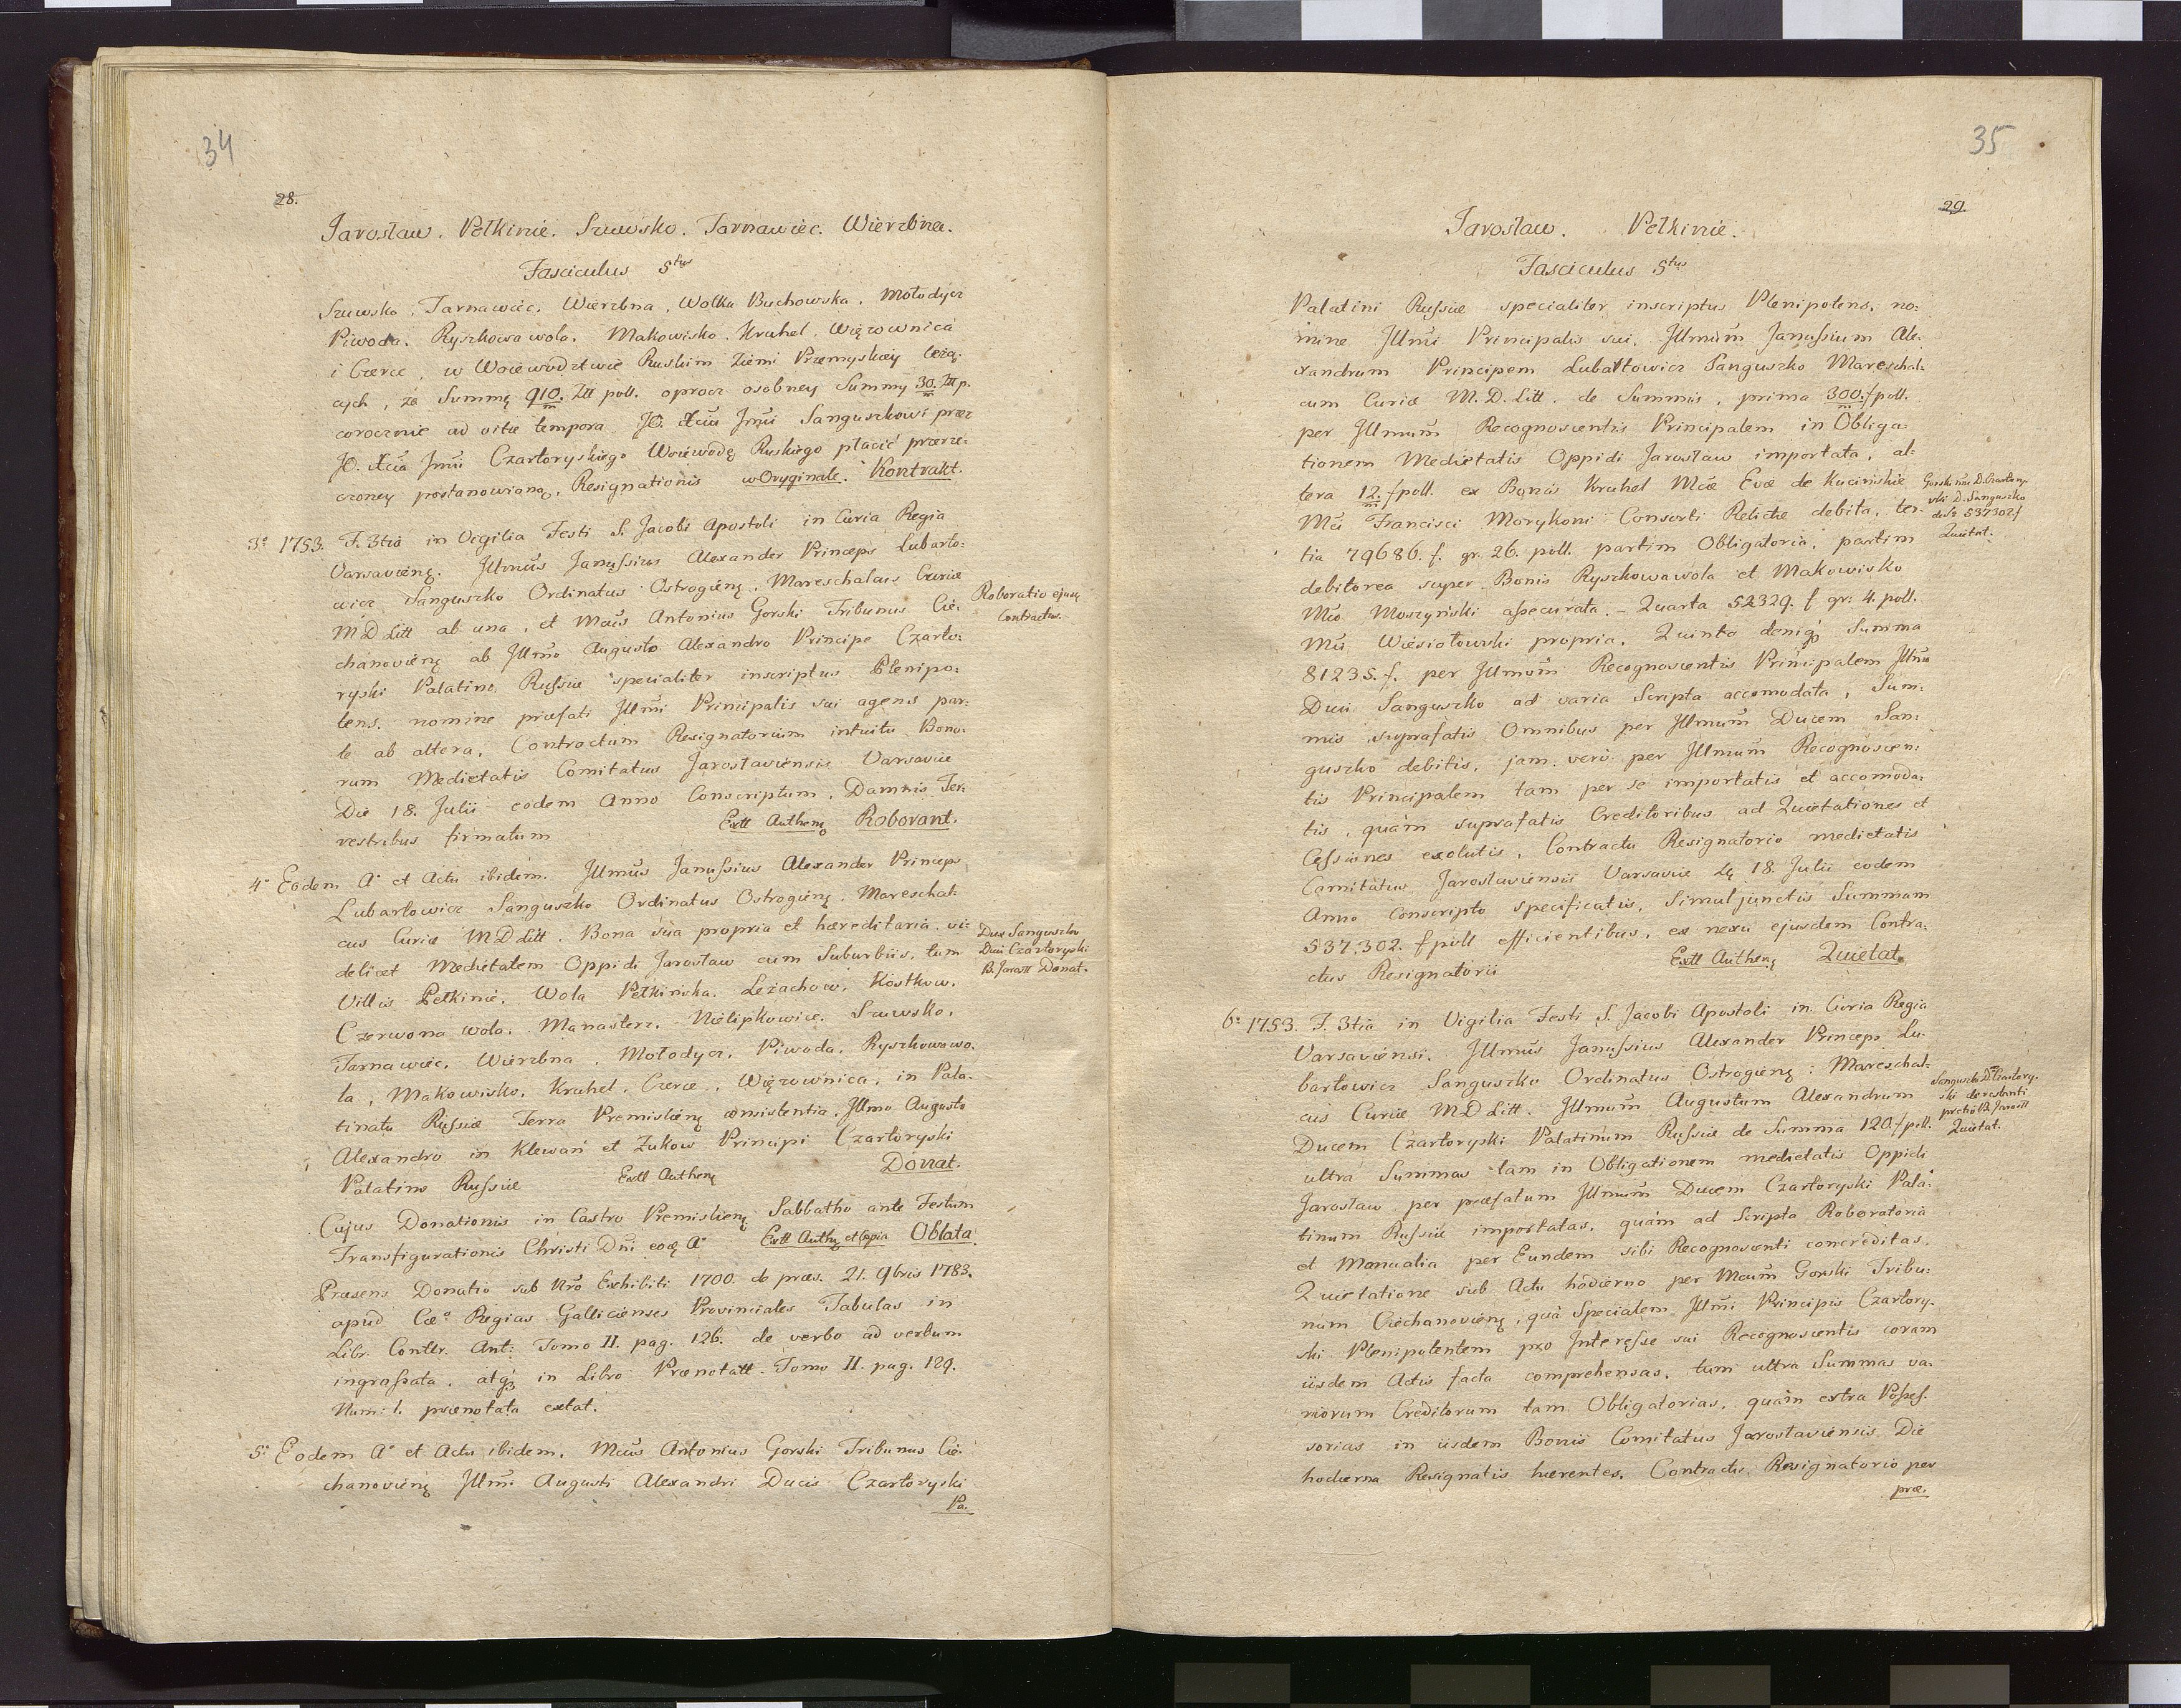 34
28.
Jarosław. Pełkinie. Szuwsko. Tarnawiec. Wierzbna.
Fasciculus 5tus
Szuwsko, Tarnawiec, Wierzbna, Wolka Buchowska, Mołodycz
Piwoda, Ryszkowa wola, Makowisko, Kruhel, Więzownica
i Czerce, w Woiewodztwie Ruskim Ziemi Przemyskiey leżą:
cych, za Summę 910. m Zll poll. oprocz osobney Summy 30. m Zll p.
corocznie ad vitæ tempora JO. Xciu Jmci Sanguszkowi przez
JO. Xcia Jmci Czartoryskiego Woiewodę Ruskiego płacić przerze:
czoney postanowioną, Resignationis w Oryginale. Kontrakt.
3o 1753. F. 3tia in Vigilia Festi S. Jacobi Apostoli in Curia Regia
Varsavienę. Jllmus Janussius Alexander Princeps Lubarto:
wicz Sanguszko Ordinatus Ostrogienę, Mareschalcus Curiæ
M D Litt ab una, et Mcus Antonius Gorski Tribunus Cie:
chanovienę ab Jllmo Augusto Alexandro Principe Czarto:
ryski Palatino Russiæ specialiter inscriptus Plenipo:
tens, nomine præfati Jllmi Principalis sui agens par:
te ab altera, Contractum Resignatorium intuitu Bono:
rum Medietatis Comitatus Jaroslaviensis Varsaviæ
Die 18. Julii eodem Anno Conscriptum, Damnis Ter:
restribus firmatum Extt Authenę Roborant.
Roboratio ejusq
Contractus.
4o Eodem Ao et Actu ibidem. Jllmus Janussius Alexander Princeps
Lubartowicz Sanguszko Ordinatus Ostrogienę, Mareschal:
cus Curiæ M D Litt. Bona sua propria et hæreditaria, vi:
delicet Medietatem Oppidi Jarosław cum Suburbiis, tum
Villis Pełkinie, Wola Pełkińska, Leżachow, Kostkow,
Czerwona wola, Manasterz, Nielipkowice, Szuwsko,
Tarnawiec, Wierzbna, Mołodycz, Piwoda, Ryszkowawo:
la, Makowisko, Kruhel, Czerce, Więzownica, in Pala:
tinatu Russiæ Terra Premislienę consistentia, Jllmo Augusto
Alexandro in Klewań et Żukow Principi Czartoryski
Palatino Russiæ Extt Authenę Donat.
Dux Sanguszko
Duci Czartoryski
B. Jarosł Donat.
Cujus Donationis in Castro Premislienę Sabbatho ante Festum
Transfigurationis Christi Dni eoą Ao Extt Authę et Copia Oblata
Præsens Donatio sub Nro Exhibiti 1700. de præs. 21. 9bris 1783.
apud Cæo Regias Gallicienses Provinciales Tabulas in
Libr. Contr. Ant: Tomo II. pag. 126. de verbo ad verbum
ingrossata, atq3 in Libro Prænotatt. Tomo II. pag. 129.
Num: 1. prænotata extat.
5o Eodem Ao et Actu ibidem. Mcus Antonius Gorski Tribunus Cie:
chanovienę Jllmi Augusti Alexandri Ducis Czartoryski
Pa.
35
29.
Jarosław. Pełkinie.
Fasciculus 5tus
Palatini Russiæ specialiter inscriptus Plenipotens, no:
mine Jllmi Principalis sui, Jllmum Janussium Ale:
xandrum Principem Lubartowicz Sanguszko Mareschal:
cum Curiæ M. D. Litt. de Summis, prima 300. m f poll.
per Jllmum Recognoscentis Principalem in Obliga:
tionem Medietatis Oppidi Jarosław importata, al:
tera 12. m f poll. ex Bonis Kruhel Mcæ Evæ de Kucinskie
Mci Francisci Morykoni Consorti Relictæ debita, ter:
tia 79686. f. gr. 26. poll. partim Obligatoria, partim
debitorea super Bonis Ryszkowawola et Makowisko
Mco Moszyński assecurata. Quarta 52329. f gr: 4. poll.
Mci Wiesiołowski propria, Quinta deniq3 Summa
81235. f. per Jllmum Recognoscentis Principalem Jllmo
Duci Sanguszko ad varia Scripta accomodata, Sum:
mis suprafatis Omnibus per Jllmum Ducem San:
guszko debitis, jam vero per Jllmum Recognoscen:
tis Principalem tam per se importatis et accomoda:
tis, quam suprafatis Creditoribus ad Quietationes et
Cessiones exolutis, Contractu Resignatorio medietatis
Comitatus Jaroslaviensis Varsaviæ dę 18. Julii eodem
Anno Conscripto specificatis, Simul junctis Summam
537.302. f poll efficientibus, ex nexu ejusdem Contra:
ctus Resignatorii Extt Authenę Quietat.
Gorski nõe D. Czartory.
ski D. Sanguszko
de Sa 537302 f
Quietat.
6o 1753. F. 3tia in Vigilia Festi S. Jacobi Apostoli in Curia Regia
Varsaviensi. Jllmus Janussius Alexander Princeps Lu:
bartowicz Sanguszko Ordinatus Ostrogienę: Mareschal:
cus Curiæ M D Litt. Jllmum Augustum Alexandrum
Ducem Czartoryski Palatinum Russiæ de Summa 120. f poll.
ultra Summas tam in Obligationem medietatis Oppidi
Jarosław per præfatum Jllmum Ducem Czartoryski Pala:
tinum Russiæ importatas, quam ad Scripta Roboratoria
et Manualia per Eundem sibi Recognoscenti concreditas,
Quietatione sub Actu hodierno per Mcum Gorski Tribu:
num Ciechanovienę, qua Specialem Jllmi Principis Czartory:
ski Plenipotentem pro Interesse sui Recognoscentis coram
iisdem Actis facta comprehensas, tum ultra Summas va:
riorum Creditorum tam Obligatorias, quam extra Posses:
sorias in iisdem Bonis Comitatus Jaroslaviensis Die
hodierna Resignatis hærentes, Contractu Resignatorio per
præ.
Sanguszko D. Czartory.
ski de restanti
pretio B. Jarosłł
Quietat.